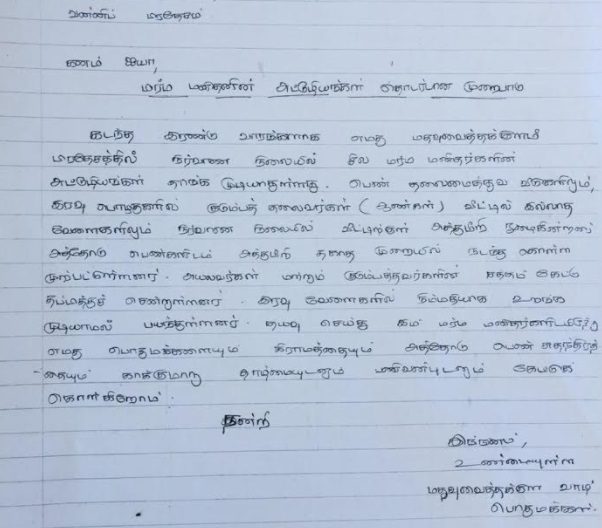 வன்னிப் பிரதேசம்
கனம் ஐயா,
மர்ம மனிதனின் அட்டூழியங்கள் தொடர்பான முறைபாடு
கடந்த இரண்டு வாரங்களாக எமது மதுவைத்தகுளம்
பிரதேசத்தில் நிர்வாண நிலையில் சில மர்ம மனிதர்களின்
அட்டூழியங்கள் தாங்க முடியாதுள்ளது. பெண் தலைமைத்துவ வீடுகளிலும்,
இரவு பொழுதுகளில் குடும்பத் தலைவர்கள் (ஆண்கள்) வீட்டில் இல்லாத
வேளைகளிலும் நிர்வாண நிலையில் வீட்டினுள் அத்துமீறி நுழைகின்றனர்
அத்தோடு பெண்களிடம் அத்துமீறி தகாத முறையில் நடந்து கொள்ள
முற்பட்டுள்ளனர். அயலவர்கள் மற்றும் குடும்பத்தவர்களின் சத்தம் கேட்டு
தப்பித்துச் சென்றுள்ளனர். இரவு வேளைகளில் நிம்மதியாக உறங்க
முடியாமல் பயந்துள்ளனர். தயவு செய்து இம் மர்ம மனிதர்களிடமிருந்து
எமது பொதுமக்களையும் கிராமத்தையும் அத்தோடு பெண் சுதந்திரத்
தையும் காக்குமாறு தாழ்மையுடனும் பணிவன்புடனும் கேட்டுக்
கொள்கிறோம்.
நன்றி
இங்ஙனம்,
உண்மையுள்ள
மதுவைத்தகுள வாழ்
பொதுமக்கள்.